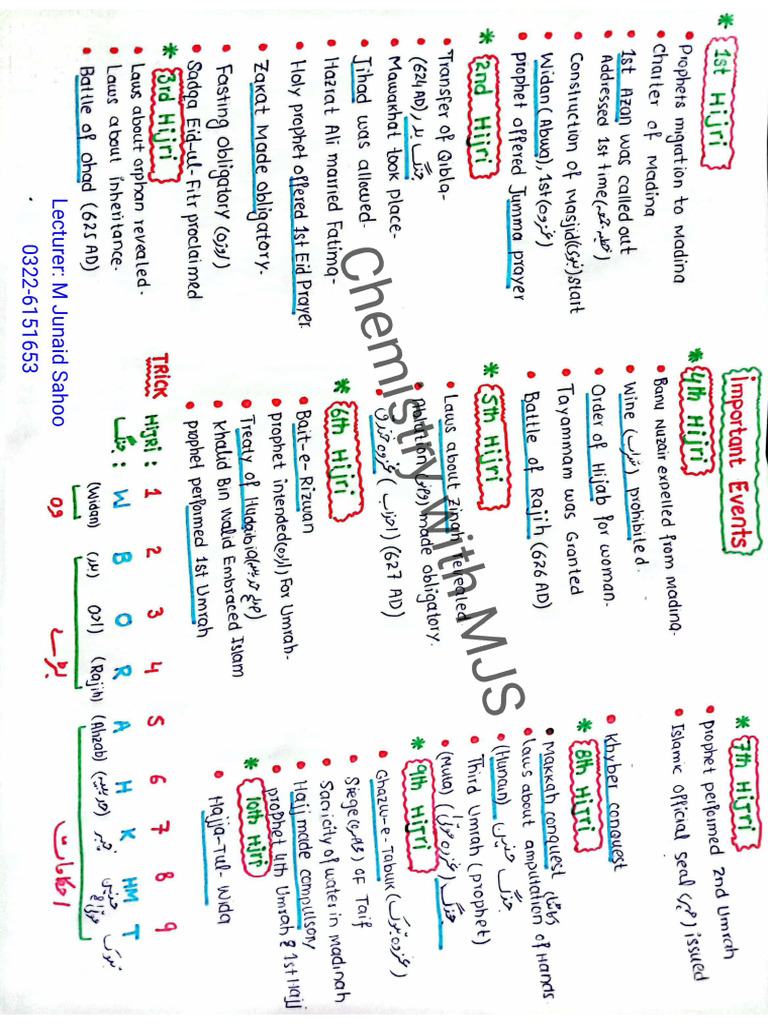 Important Events
* 1st Hijri
• Prophets migration to Madina
• Charter of Madina
• 1st Azan was called out
Addressed 1st time (خطبہ جمعہ)
• Construction of Masjid (نبوی) start
• Widan (Abwa), 1st (غزوہ)
• prophet offered Jumma prayer
* 2nd Hijri
• Transfer of Qibla-
(624 AD) جنگ بدر
• Mawakhat took place-
• Jihad was allowed-
• Hazrat Ali married Fatima-
• Holy prophet offered 1st Eid Prayer.
• Zakat Made obligatory-
• Fasting obligatory (روزہ)
• Sadqa Eid-ul-Fitr proclaimed
* 3rd Hijri
• Laws about orphan revealed-
• Laws about inheritance.
• Battle of ohad (625 AD)
* 4th Hijri
• Banu Nuzair expelled from Madina.
• Wine (شراب) prohibited.
• Order of Hijab for woman-
• Tayammam was Granted
• Battle of Rajih (626 AD)
* 5th Hijri
• Laws about Zinah revealed
• Ablution (وضو) made obligatory.
• غزوہ خندق (احزاب) (627 AD)
* 6th Hijri
• Bait-e-Rizwan
• prophet intended (ارادہ) For Umrah-
• Treaty of Hudabia (صلح حدیبیہ)
• Khalid Bin Walid Embraced Islam
• prophet performed 1st Umrah
* 7th Hijri
• prophet performed 2nd Umrah
• Islamic official seal (مہر) issued
• Khyber conquest
* 8th Hijri
• Makkah conquest کاٹنا
• Laws about ampulation of Hands
• (Hunan) جنگ حنین
• Third Umrah (prophet)
• (Muta) (غزوہ موتہ) جنگ
* 9th Hijri
• Ghazwa-e-Tabuk (غزوہ تبوک)
• Siege (محاصرہ) OF Taif
• Sanicity of water in madinah
• Hajj made compulsory
• prophet 4th Umrah & 1st Hajj
* 10th Hjri
• Hajja-Tul-Wida
TRICK Hijri : 1 2 3 4 5 6 7 8 9
جنگ : W B O R A H K HM T
(Widan) (بدر) (احد) (Rajih) (Ahzab) (حدیبیہ) خیبر حنین موتہ تبوک
Lecturer: M Junaid Sahoo
0322-6151653
Chemistry with MJS